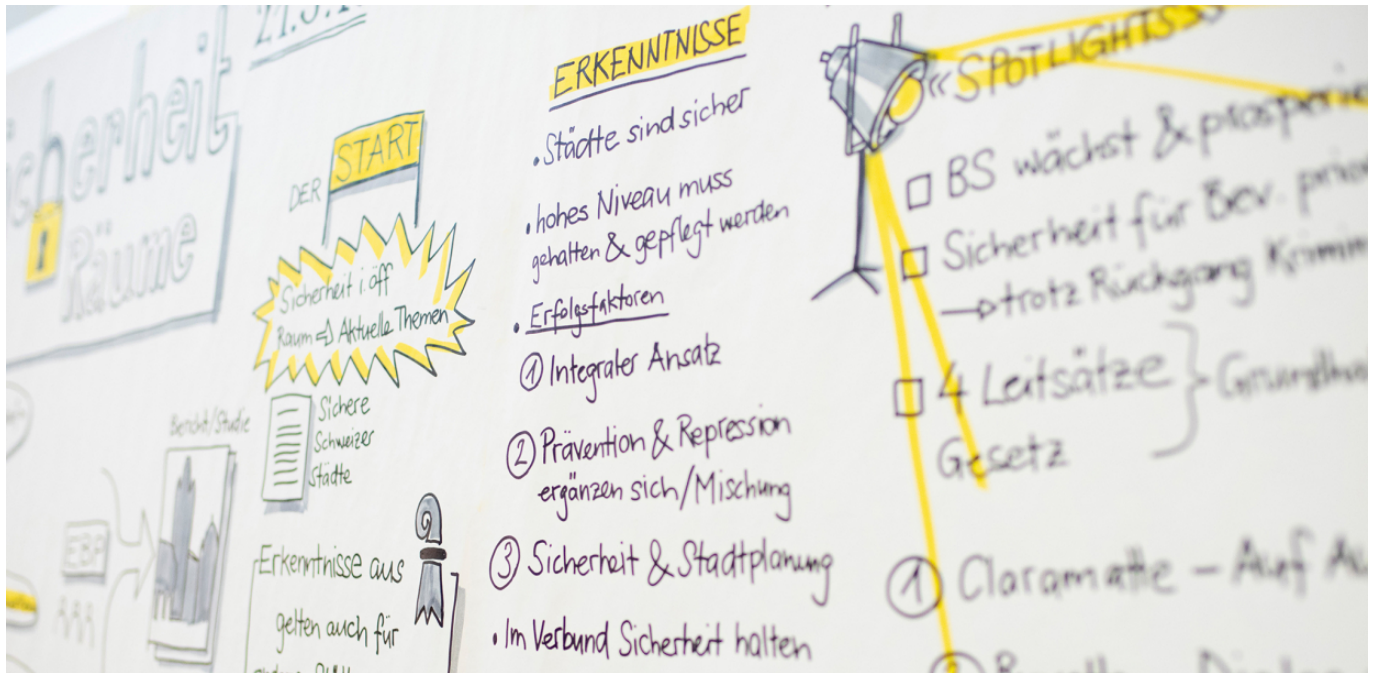 Sicherheit
Räume
DER START
Sicherheit i. öff
Raum ⇒ Aktuelle Themen
Sichere
Schweizer
Städte
Bericht/Studie
EBP
Erkenntnisse aus
gelten auch für
ERKENNTNISSE
• Städte sind sicher
• hohes Niveau muss
gehalten & gepflegt werden
• Erfolgsfaktoren
① Integraler Ansatz
② Prävention & Repression
ergänzen sich/Mischung
③ Sicherheit & Stadtplanung
• Im Verbund Sicherheit halten
«SPOTLIGHTS»
□ BS wächst & prosperie
□ Sicherheit für Bev.
→ trotz Rückgang Krimin
□ 4 Leitsätze
Gesetz
① Claramatte – Auf